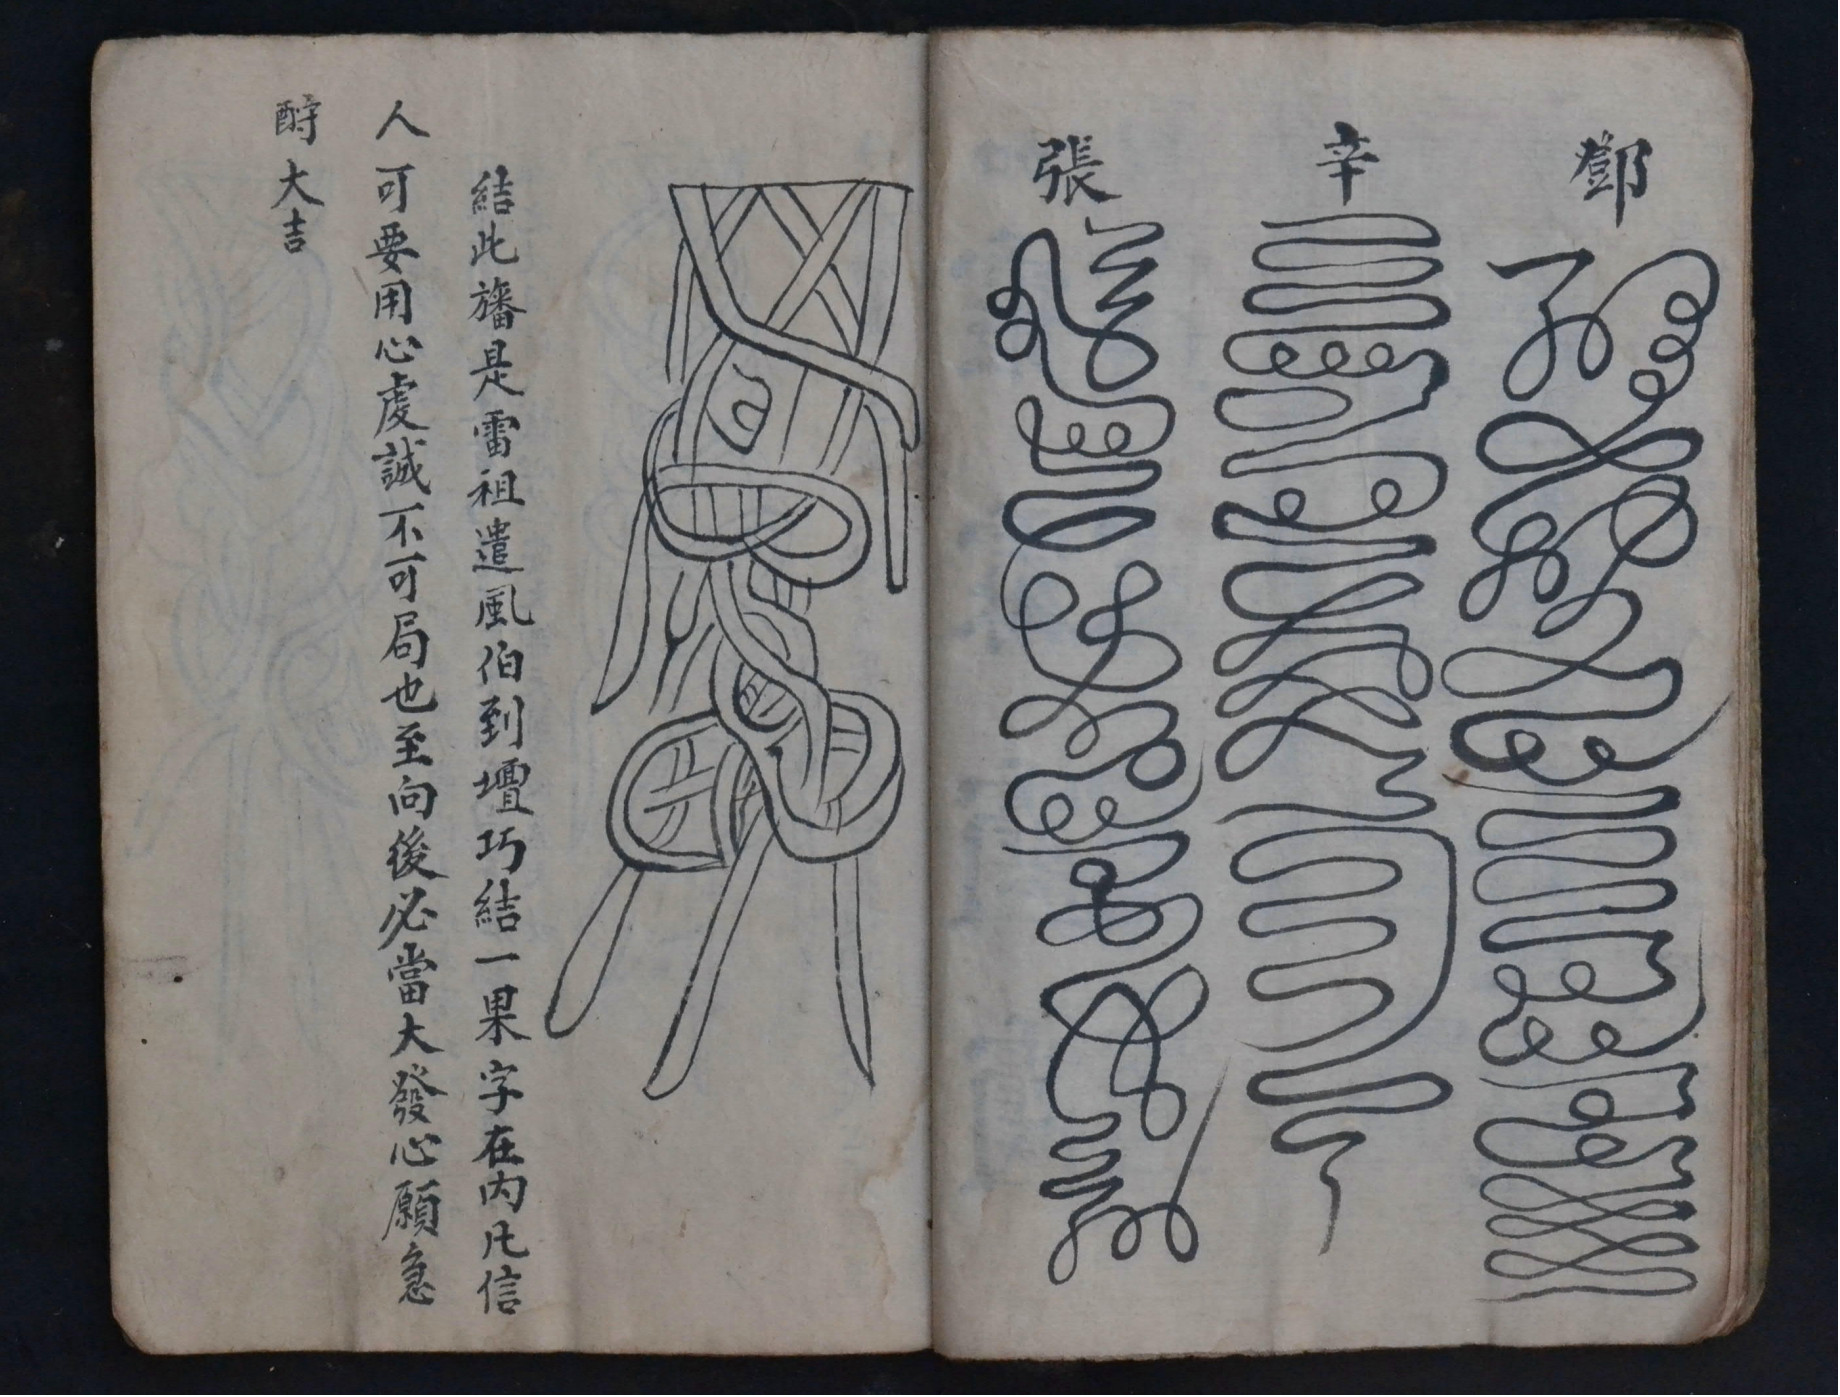 鄧
辛
張
結此旛是雷祖遣風伯到壇巧結一果字在內凡信
人可要用心虔誠不可局也至向後必當大發心願急
酧大吉